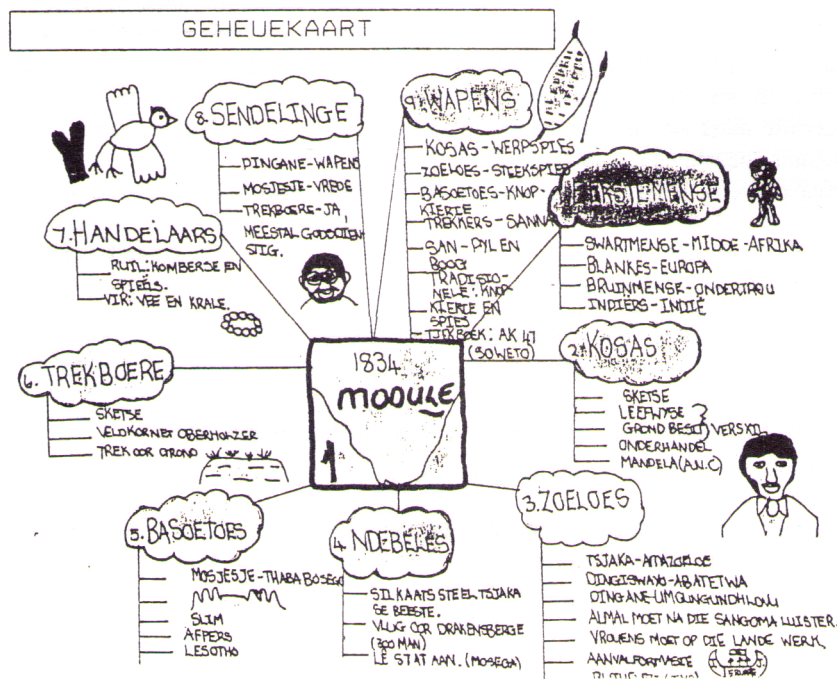 GEHEUEKAART
1834
MODULE
1
1. EERSTE MENSE
SWARTMENSE - MIDDE - AFRIKA
BLANKES - EUROPA
BRUINMENSE - ONDERTROU
INDIËRS - INDIË
2. KOSAS
SKETSE
LEEFWYSE
GROND BESIT } VERSKIL
ONDERHANDEL
MANDELA (A.N.C)
3. ZOELOES
TSJAKA - AMAZOELOE
DINGISWAYO - ABATETWA
DINGANE - UMGUNGUNDHLOVU
ALMAL MOET NA DIE SANGOMA LUISTER.
VROUENS MOET OP DIE LANDE WERK,
AANVALFORMASIE
4. NDEBELES
SILKAATS STEEL TSJAKA
SE BEESTE.
VLUG OOR DRAKENSBERGE
(300 MAN)
LÊ STAT AAN. (MOSEGA)
5. BASOETOES
MOSJESJE - THABA BOSEGO
SLIM
AFPERS
LESOTHO
6. TREKBOERE
SKETSE
VELDKORNET OBERHOLZER
TREK OOR GROND
7. HANDELAARS
RUIL: KOMBERSE EN
SPIEËLS.
VIR: VEE EN KRALE.
8. SENDELINGE
DINGANE - WAPENS
MOSJESJE - VREDE
TREKBOERE - JA,
MEESTAL GODSDIEN
STIG.
9. WAPENS
KOSAS - WERPSPIES
ZOELOES - STEEKSPIES
BASOETOES - KNOP-
KIERIE
TREKKERS - SANNA
SAN - PYL EN
BOOG
TRADISIO-
NELE: KNOP-
KIERIE EN
SPIES
TJEKBOEK: AK 47
(SOWETO)